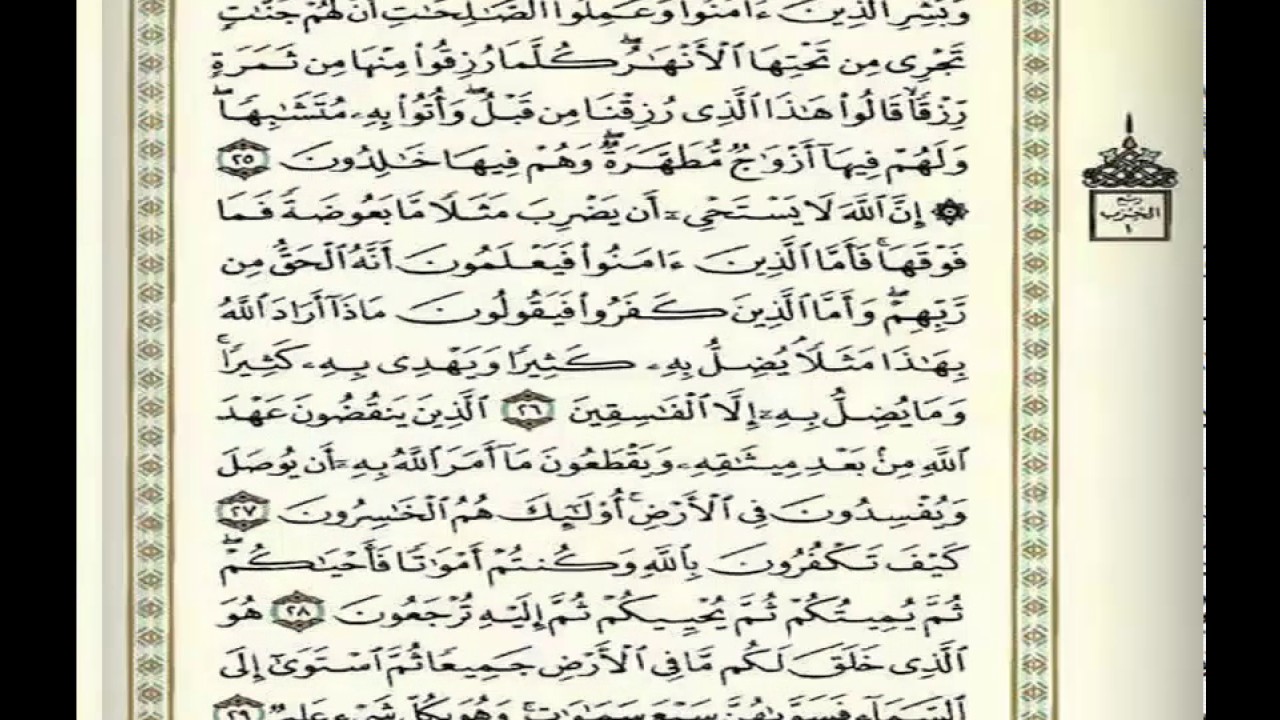 وَبَشِّرِ ٱلَّذِينَ ءَامَنُوا۟ وَعَمِلُوا۟ ٱلصَّـٰلِحَـٰتِ أَنَّ لَهُمْ جَنَّـٰتٍ
تَجْرِى مِن تَحْتِهَا ٱلْأَنْهَـٰرُ ۖ كُلَّمَا رُزِقُوا۟ مِنْهَا مِن ثَمَرَةٍ
رِّزْقًا ۙ قَالُوا۟ هَـٰذَا ٱلَّذِى رُزِقْنَا مِن قَبْلُ ۖ وَأُتُوا۟ بِهِۦ مُتَشَـٰبِهًا ۖ
وَلَهُمْ فِيهَآ أَزْوَٰجٌ مُّطَهَّرَةٌ ۖ وَهُمْ فِيهَا خَـٰلِدُونَ ٢٥
۞ إِنَّ ٱللَّهَ لَا يَسْتَحْىِۦٓ أَن يَضْرِبَ مَثَلًا مَّا بَعُوضَةً فَمَا
ربع
الحزب
١
فَوْقَهَا ۚ فَأَمَّا ٱلَّذِينَ ءَامَنُوا۟ فَيَعْلَمُونَ أَنَّهُ ٱلْحَقُّ مِن
رَّبِّهِمْ ۖ وَأَمَّا ٱلَّذِينَ كَفَرُوا۟ فَيَقُولُونَ مَاذَآ أَرَادَ ٱللَّهُ
بِهَـٰذَا مَثَلًا ۘ يُضِلُّ بِهِۦ كَثِيرًا وَيَهْدِى بِهِۦ كَثِيرًا ۚ
وَمَا يُضِلُّ بِهِۦٓ إِلَّا ٱلْفَـٰسِقِينَ ٢٦ ٱلَّذِينَ يَنقُضُونَ عَهْدَ
ٱللَّهِ مِنۢ بَعْدِ مِيثَـٰقِهِۦ وَيَقْطَعُونَ مَآ أَمَرَ ٱللَّهُ بِهِۦٓ أَن يُوصَلَ
وَيُفْسِدُونَ فِى ٱلْأَرْضِ ۚ أُو۟لَـٰٓئِكَ هُمُ ٱلْخَـٰسِرُونَ ٢٧
كَيْفَ تَكْفُرُونَ بِٱللَّهِ وَكُنتُمْ أَمْوَٰتًا فَأَحْيَـٰكُمْ ۖ
ثُمَّ يُمِيتُكُمْ ثُمَّ يُحْيِيكُمْ ثُمَّ إِلَيْهِ تُرْجَعُونَ ٢٨ هُوَ
ٱلَّذِى خَلَقَ لَكُم مَّا فِى ٱلْأَرْضِ جَمِيعًا ثُمَّ ٱسْتَوَىٰٓ إِلَى
ٱلسَّمَآءِ فَسَوَّىٰهُنَّ سَبْعَ سَمَـٰوَٰتٍ ۚ وَهُوَ بِكُلِّ شَىْءٍ عَلِيمٌ ٢٩